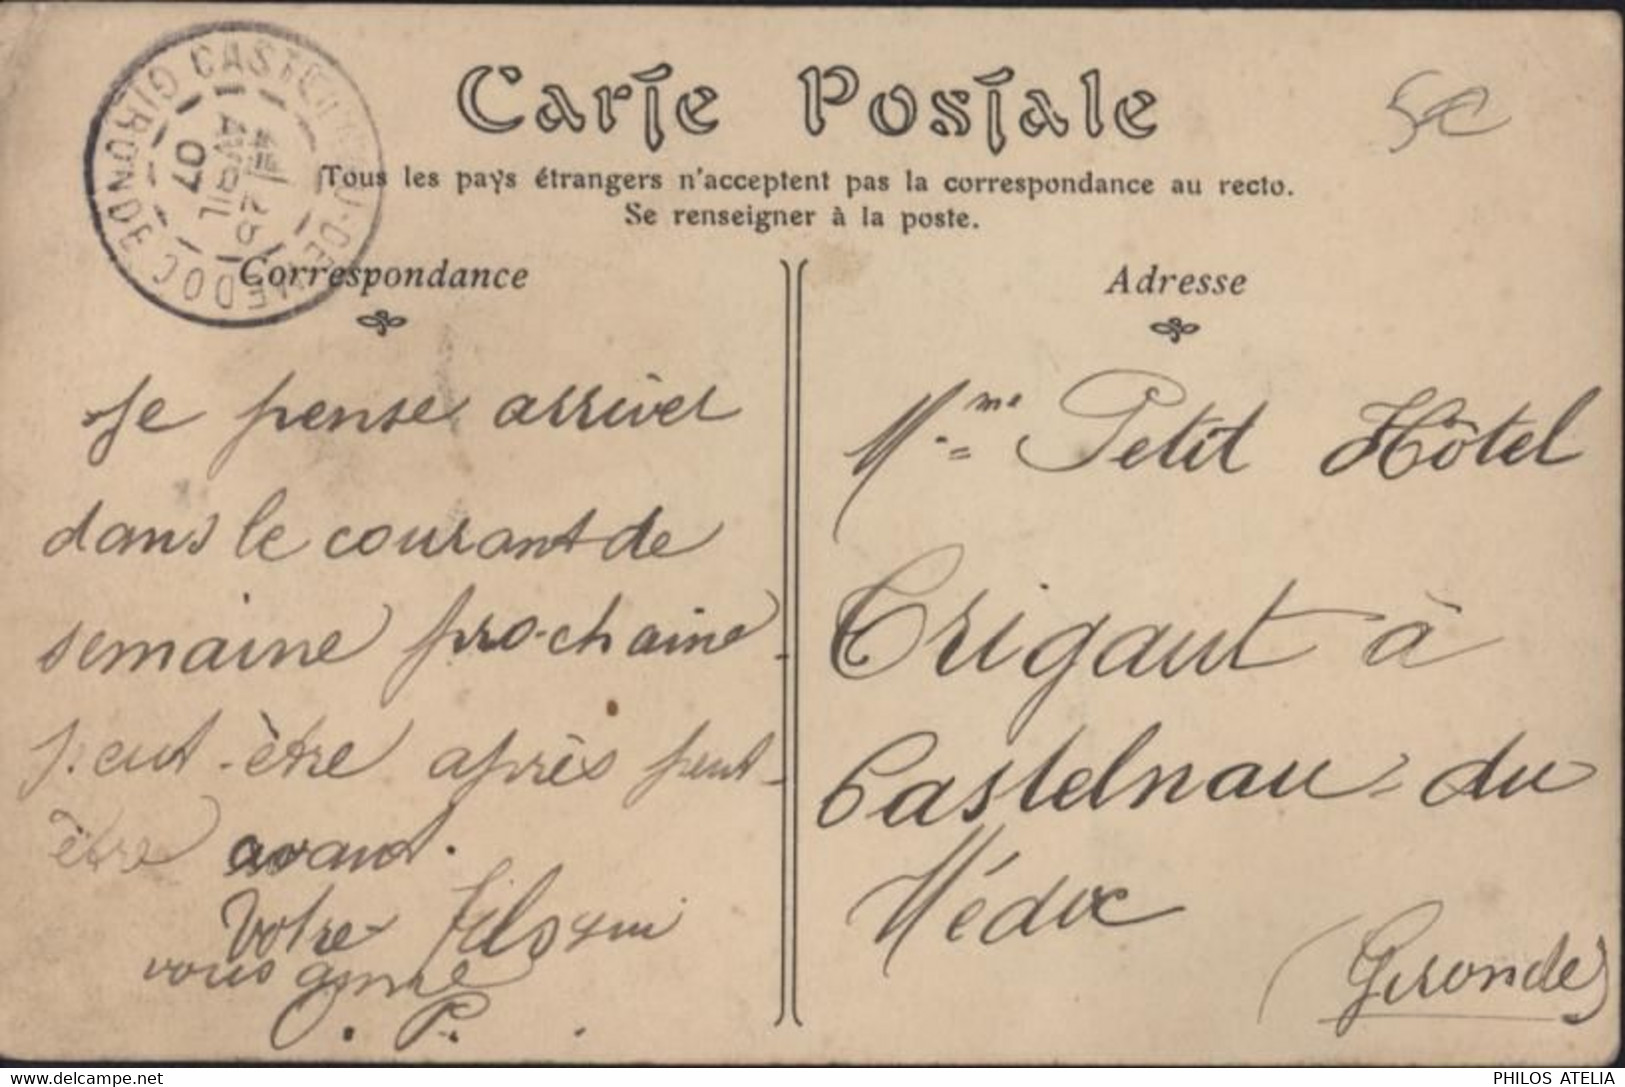 CASTELNAU-DE-MEDOC GIRONDE
AVRIL
07
Carte Postale
5€
Tous les pays étrangers n'acceptent pas la correspondance au recto.
Se renseigner à la poste.
Correspondance
Je pense arriver
dans le courant de
semaine pro-chaine
peut-être après peut-
être avant.
Votre fils qui
vous aime
P.
Adresse
Mme Petit Hôtel
Trigaut à
Castelnau-du
Médoc
(Gironde)
PHILOS ATELIA